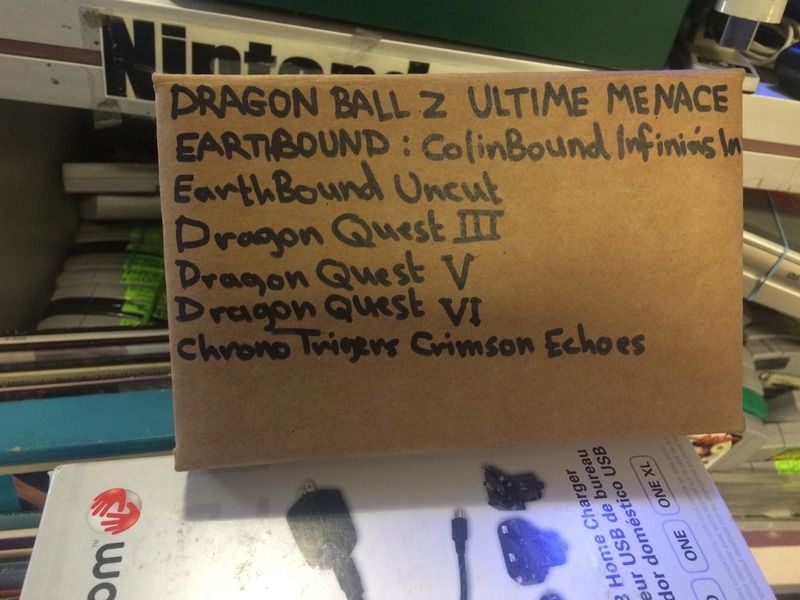 Nintend
DRAGON BALL Z ULTIME MENACE
EARTHBOUND : ColinBound Infinia's In
EarthBound Uncut
Dragon Quest III
Dragon Quest V
Dragon Quest VI
Chrono Trigers Crimson Echoes
om
Home Charger
eur USB de bureau
dor doméstico USB
ONE
ONE XL